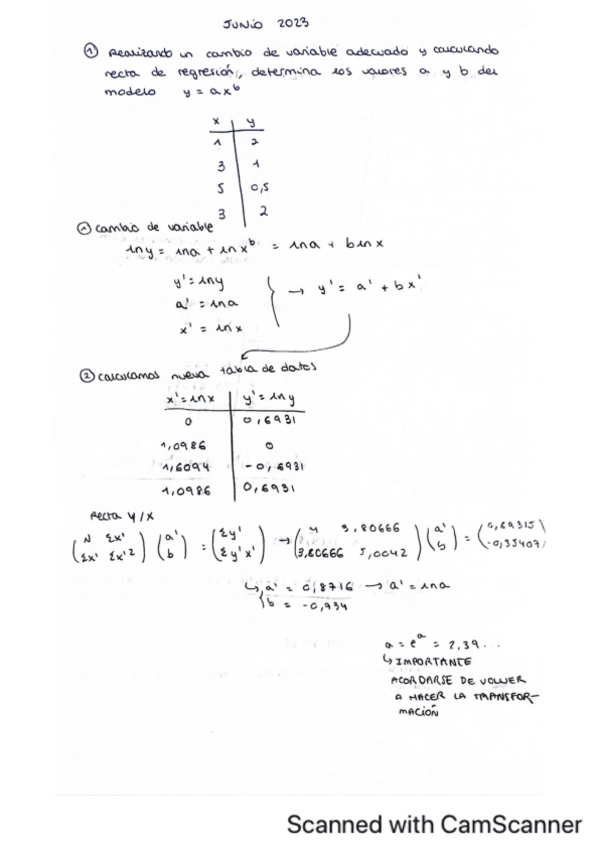 JUNIO 2023
① Realizando un cambio de variable adecuado y calculando
recta de regresión, determina los valores a y b del
modelo y = ax^b
x | y
1 | 2
3 | 1
5 | 0,5
3 | 2
① cambio de variable
ln y = ln a + ln x^b = ln a + b ln x
y' = ln y
a' = ln a } → y' = a' + bx'
x' = ln x
② calculamos nueva tabla de datos
x' = ln x | y' = ln y
0 | 0,6931
1,0986 | 0
1,6094 | -0,6931
1,0986 | 0,6931
Recta Y/X
(N Σx' (a' = (Σy' → (4 3,80666 (a' = (0,69315
Σx' Σx'²) b) Σy'x') 3,80666 5,0042) b) -0,35407)
↳ { a' = 0,8716 → a' = ln a
b = -0,734
a = e^a = 2,39...
↳ IMPORTANTE
ACORDARSE DE VOLVER
A HACER LA TRANSFOR-
MACIÓN
Scanned with CamScanner